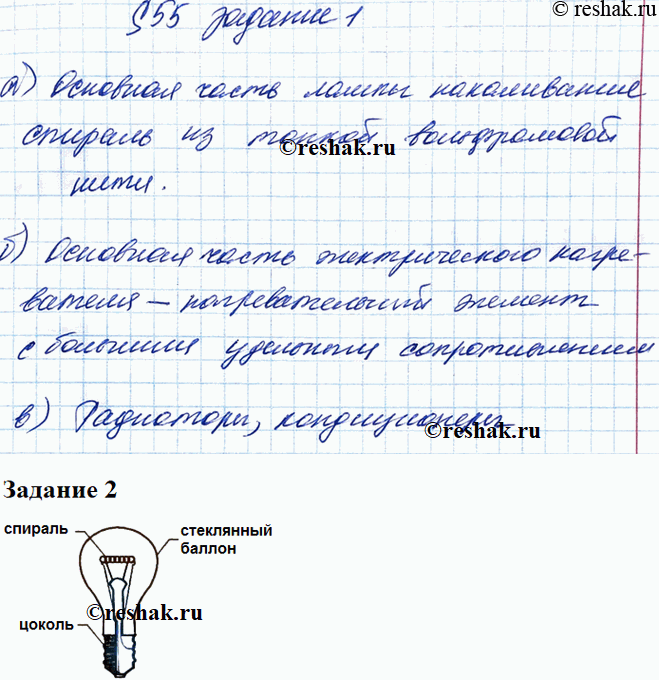 ©reshak.ru
§55 задание 1
а) Основная часть лампы накаливание
спираль из тонкой вольфрамовой
©reshak.ru
нити.
б) Основная часть электрического нагре-
вателя — нагревательный элемент
с большим удельным сопротивлением
в) Радиаторы, кондиционеры
©reshak.ru
Задание 2
спираль
стеклянный
баллон
©reshak.ru
цоколь